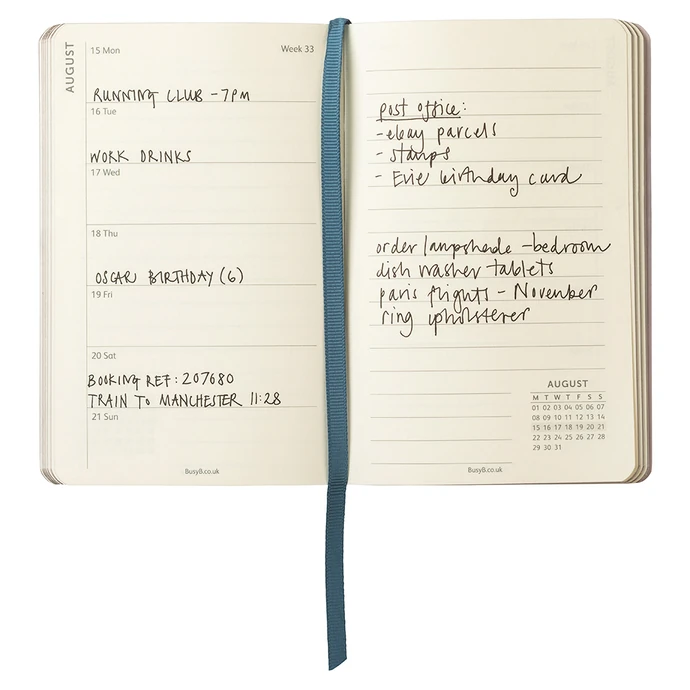 AUGUST
15 Mon Week 33
RUNNING CLUB - 7PM
16 Tue
WORK DRINKS
17 Wed
18 Thu
OSCAR BIRTHDAY (6)
19 Fri
20 Sat
BOOKING REF: 207680
TRAIN TO MANCHESTER 11:28
21 Sun
BusyB.co.uk
post office:
- ebay parcels
- stamps
- Evie birthday card
order lampshade - bedroom
dish washer tablets
paris flights - November
ring upholsterer
AUGUST
M T W T F S S
01 02 03 04 05 06 07
08 09 10 11 12 13 14
15 16 17 18 19 20 21
22 23 24 25 26 27 28
29 30 31
BusyB.co.uk